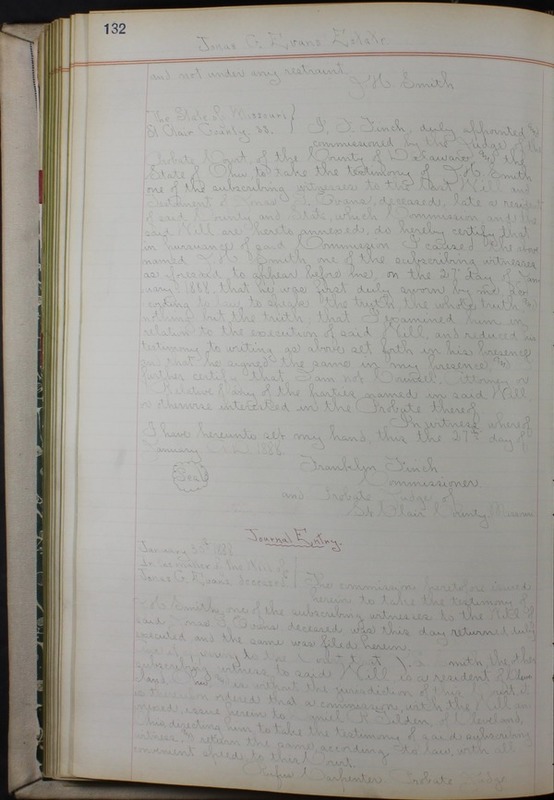 132
Jonas G. Evans Estate
and not under any restraint.
J. H. Smith
The State of Missouri
St Clair County, ss.
I, F. Finch, duly appointed &
commissioned by the Judge of the
Probate Court, of the County of Delaware, and the
State of Ohio, to take the testimony of J. H. Smith
one of the subscribing witnesses to the Last Will and
Testament of Jonas G. Evans, deceased, late a resident
of said County and State, which Commission and the
said Will are hereto annexed, do hereby certify that
in pursuance of said Commission I caused the above
named J. H. Smith, one of the subscribing witnesses
as aforesaid to appear before me on the 27 day of Jan
uary 1888, that he was first duly sworn by me ac
cording to law, to speak the truth the whole truth &
nothing but the truth, that I examined him in
relation to the execution of said Will, and reduced his
testimony to writing as above set forth in his presence
and that he signed the same in my presence, and
further certify that I am not Counsel, Attorney or
Relative of any of the parties named in said Will
or otherwise interested in the Probate thereof.
In witness whereof
I have hereunto set my hand, this the 27th day of
January 1888.
Franklin Finch
Seal
Commissioner
and Probate Judge of
St Clair County Missouri
Journal Entry.
January 30th 1888
In the matter of the Will of
Jonas G. Evans deceased
The commission heretofore issued
herein to take the testimony of
J. H. Smith, one of the subscribing witnesses to the Will of
said Jonas G. Evans deceased was this day returned duly
executed and the same was filed herein.
Smith, the other
subscribing witness to said Will, is a resident of
is without the jurisdiction of this Court, it
is therefore ordered that a commission, with the Will an
nexed, issue herein to Tilden, of Cleveland,
Ohio directing him to take the testimony of said subscribing
witness, & return the same, according to law, with all
convenient speed to this Court.
Rufus Carpenter Probate Judge